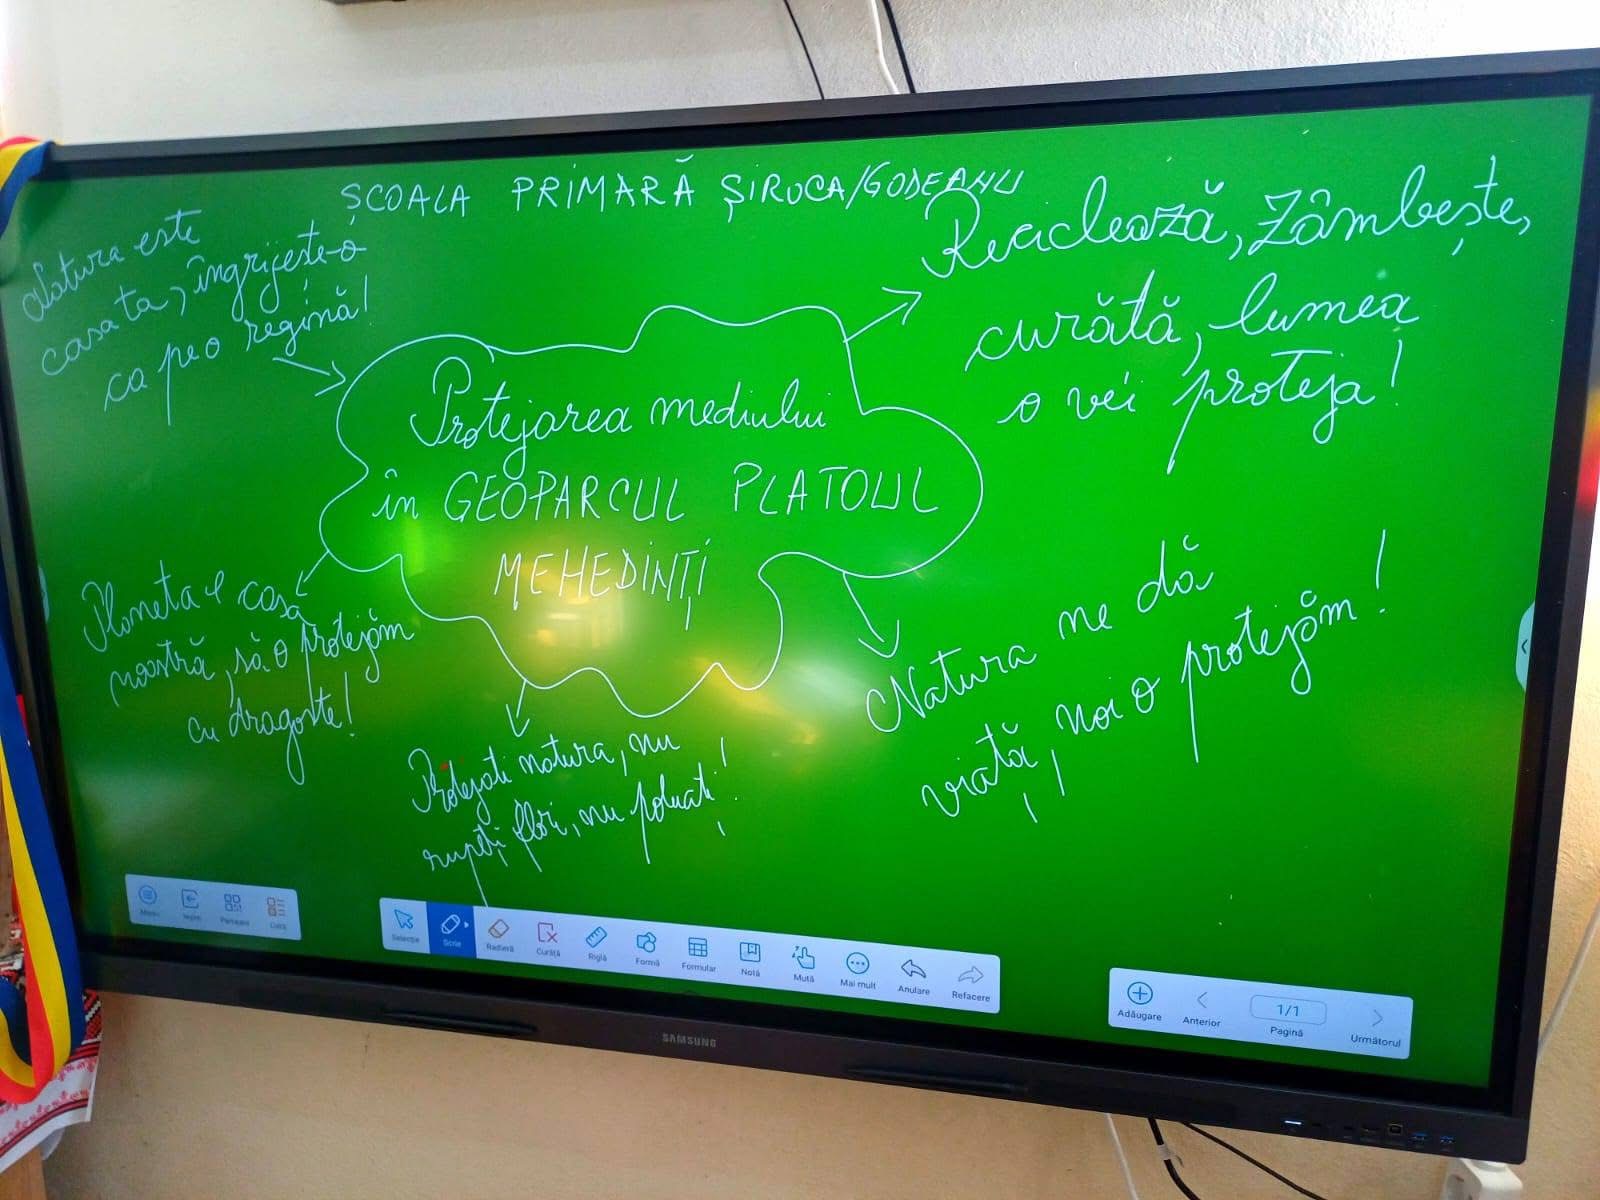 ȘCOALA PRIMARĂ ȘIROCA/GODEANU
Natura este
casa ta, îngrijește-o
ca pe o regină!
Reciclează, zâmbește,
curăță, lumea
o vei proteja!
Protejarea mediului
în GEOPARCUL PLATOUL
MEHEDINȚI
Planeta e casa
noastră, să o protejăm
cu dragoste!
Protejați natura, nu
rupeți flori, nu poluați!
Natura ne dă
viață, noi o protejăm!
Meniu
Ieșire
Partajare
Selecție
Scrie
Radieră
Curăță
Riglă
Formă
Formular
Notă
Mută
Mai mult
Anulare
Refacere
Adăugare
Anterior
1/1
Pagină
Următorul
SAMSUNG